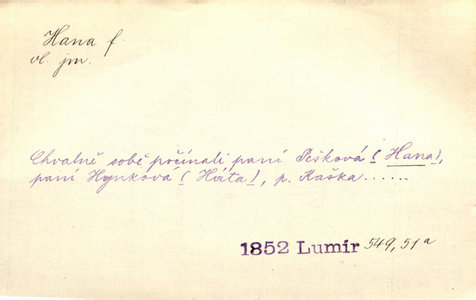 Hana f.
vl. jm.
Chvalně sobě počínali paní Pešková (Hana),
paní Hynková (Háta), p. Kaška......
1852 Lumír 549,51a